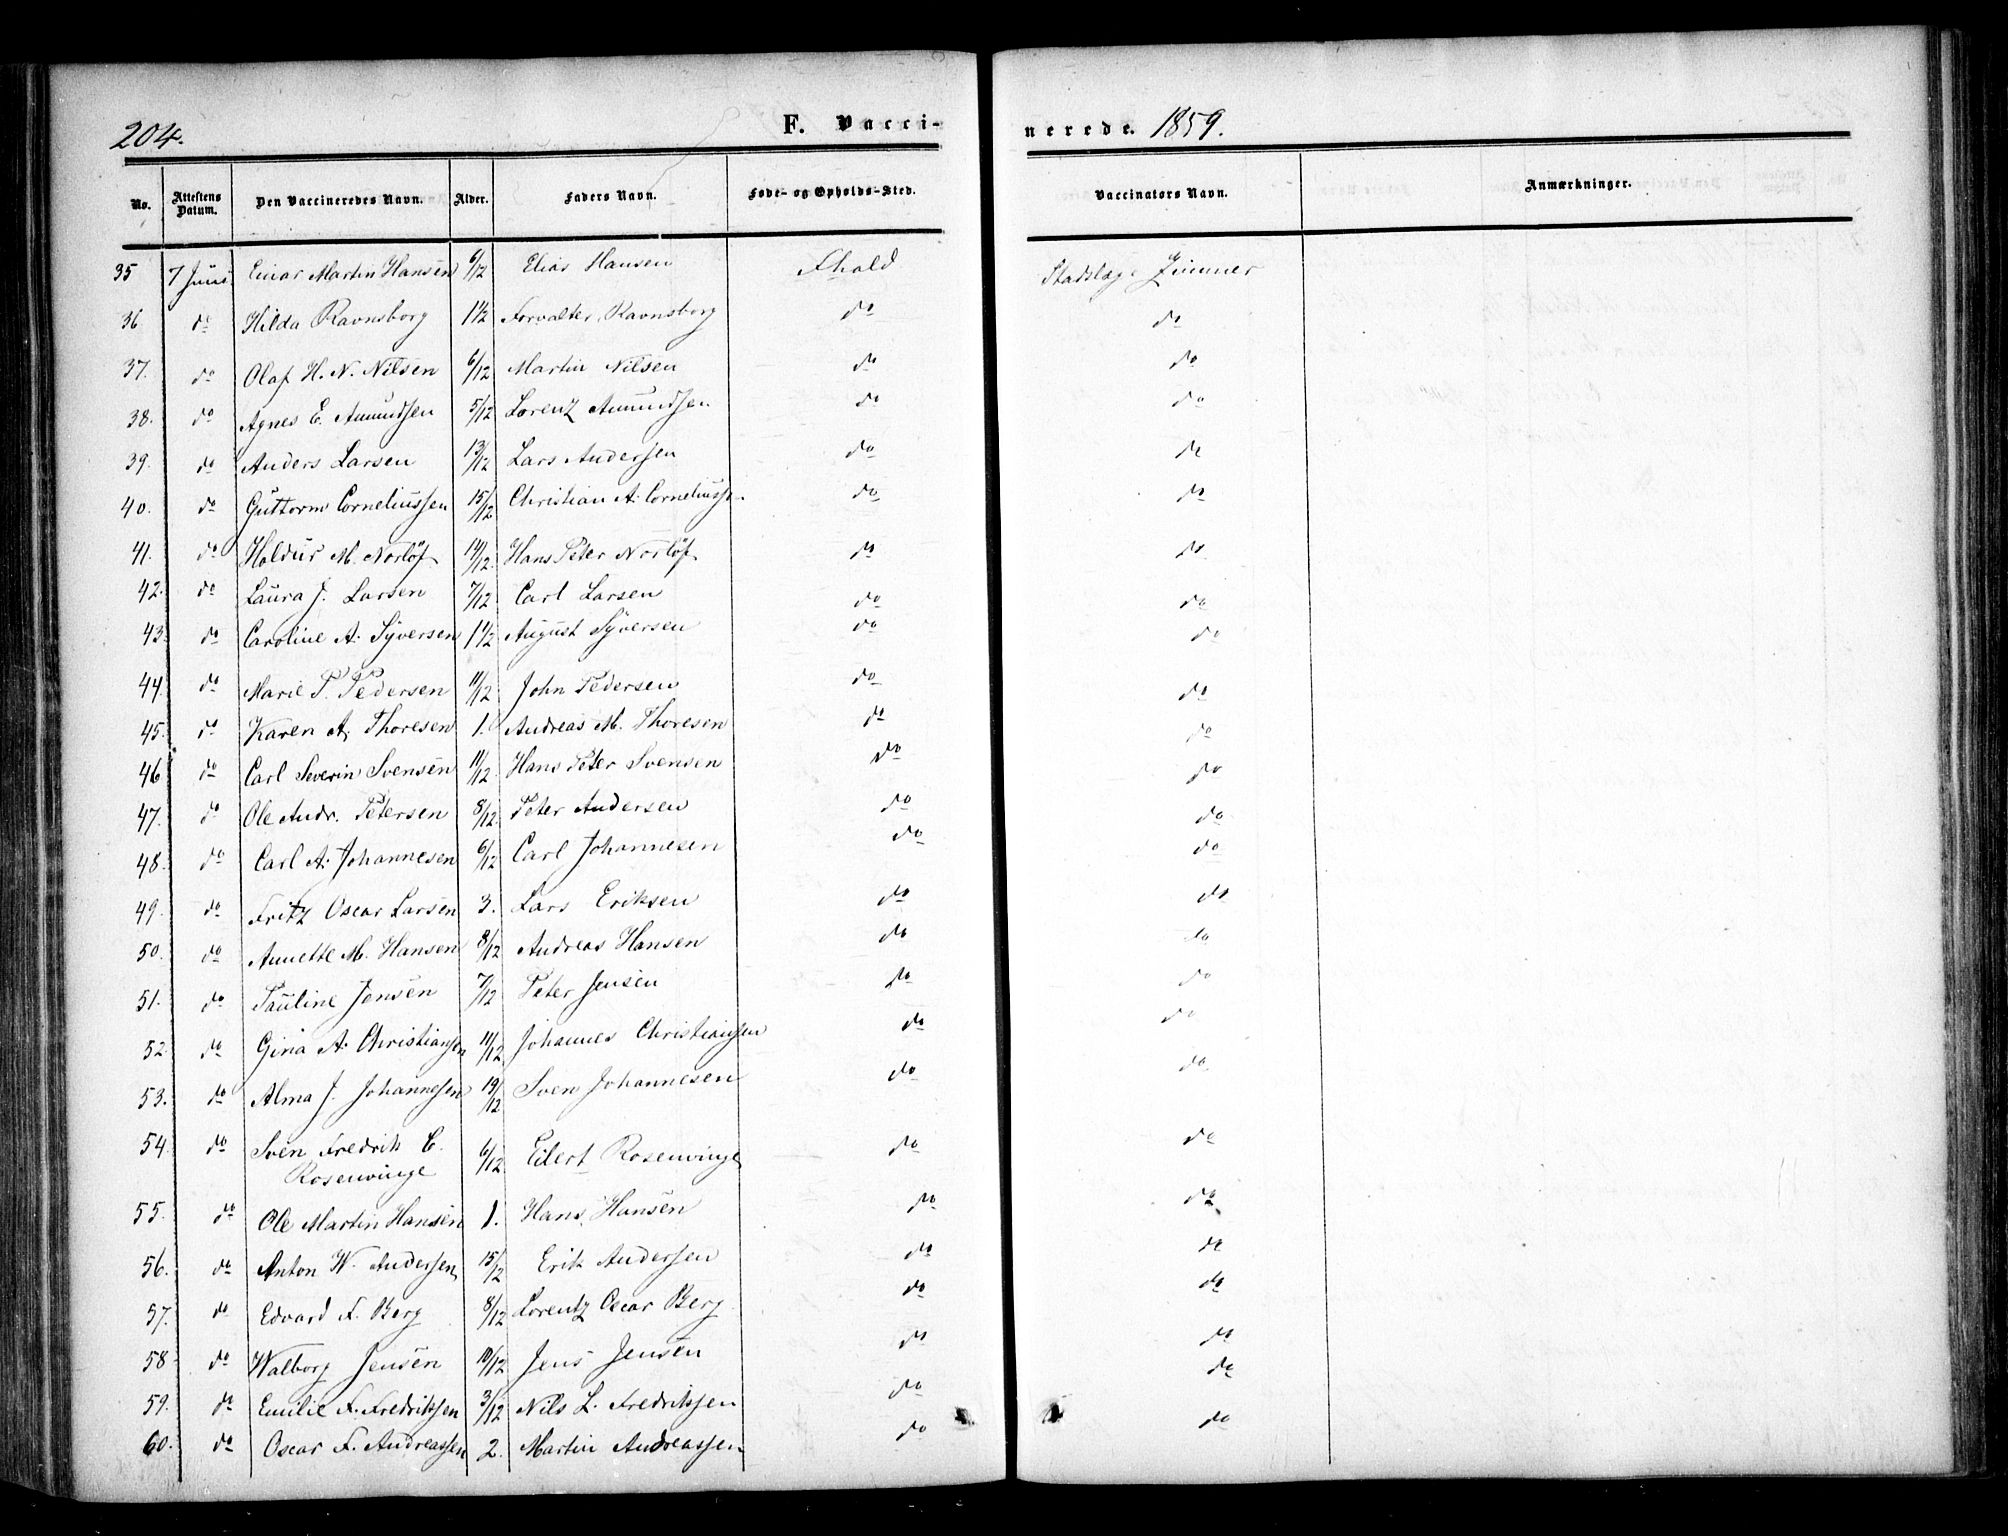 204.
F. Vaccinerede. 1859.
No. Attestens Datum. Den Vaccineredes Navn. Alder. Faders Navn. Føde- og Opholds-Sted. Vaccinators Navn. Anmærkninger.
35 7 Juni Einar Martin Hansen 6/12 Elias Hansen Fhald Stadslæge Zimmer
36 do Hilda Ravnsborg 1½ Forvalter Ravnsborg do do
37. do Olaf H. N. Nilsen 6/12 Martin Nilsen do do
38. do Agnes E. Amundsen 5/12 Lorenz Amundsen do do
39. do Anders Larsen 13/12 Lars Andersen do do
40. do Guttorm Corneliussen 15/12 Christian A. Corneliussen do do
41. do Haldur M. Norlöf 14/12 Hans Peter Norlöf do do
42. do Laura J. Larsen 7/12 Carl Larsen do do
43. do Caroline A. Syversen 1½ August Syversen do do
44. do Marie P. Pedersen 11/12 John Pedersen do do
45. do Karen A. Thoresen 1. Andreas M. Thoresen do do
46 do Carl Severin Svensen 11/12 Hans Peter Svensen do do
47. do Ole Andr. Petersen 8/12 Peter Andersen do do
48. do Carl A. Johannesen 6/12 Carl Johannesen do do
49. do Fritz Oscar Larsen 3. Lars Eriksen do do
50. do Annette M. Hansen 8/12 Andreas Hansen do do
51. do Pauline Jensen 7/12 Peter Jensen do do
52. do Gina A. Christiansen 11/12 Johannes Christiansen do do
53. do Alma J. Johannesen 19/12 Sven Johannesen do do
54. do Sven Fredrik C. Rosenvinge 6/12 Eilert Rosenvinge do do
55. do Ole Martin Hansen 1. Hans Hansen do do
56. do Anton W. Andersen 15/12 Erik Andersen do do
57. do Edvard F. Berg 8/12 Lorentz Oscar Berg do do
58 do Walborg Jensen 10/12 Jens Jensen do do
59. do Emilie F. Fredriksen 3/12 Nils L. Fredriksen do do
60. do Oscar F. Andreassen 2. Martin Andreassen do do